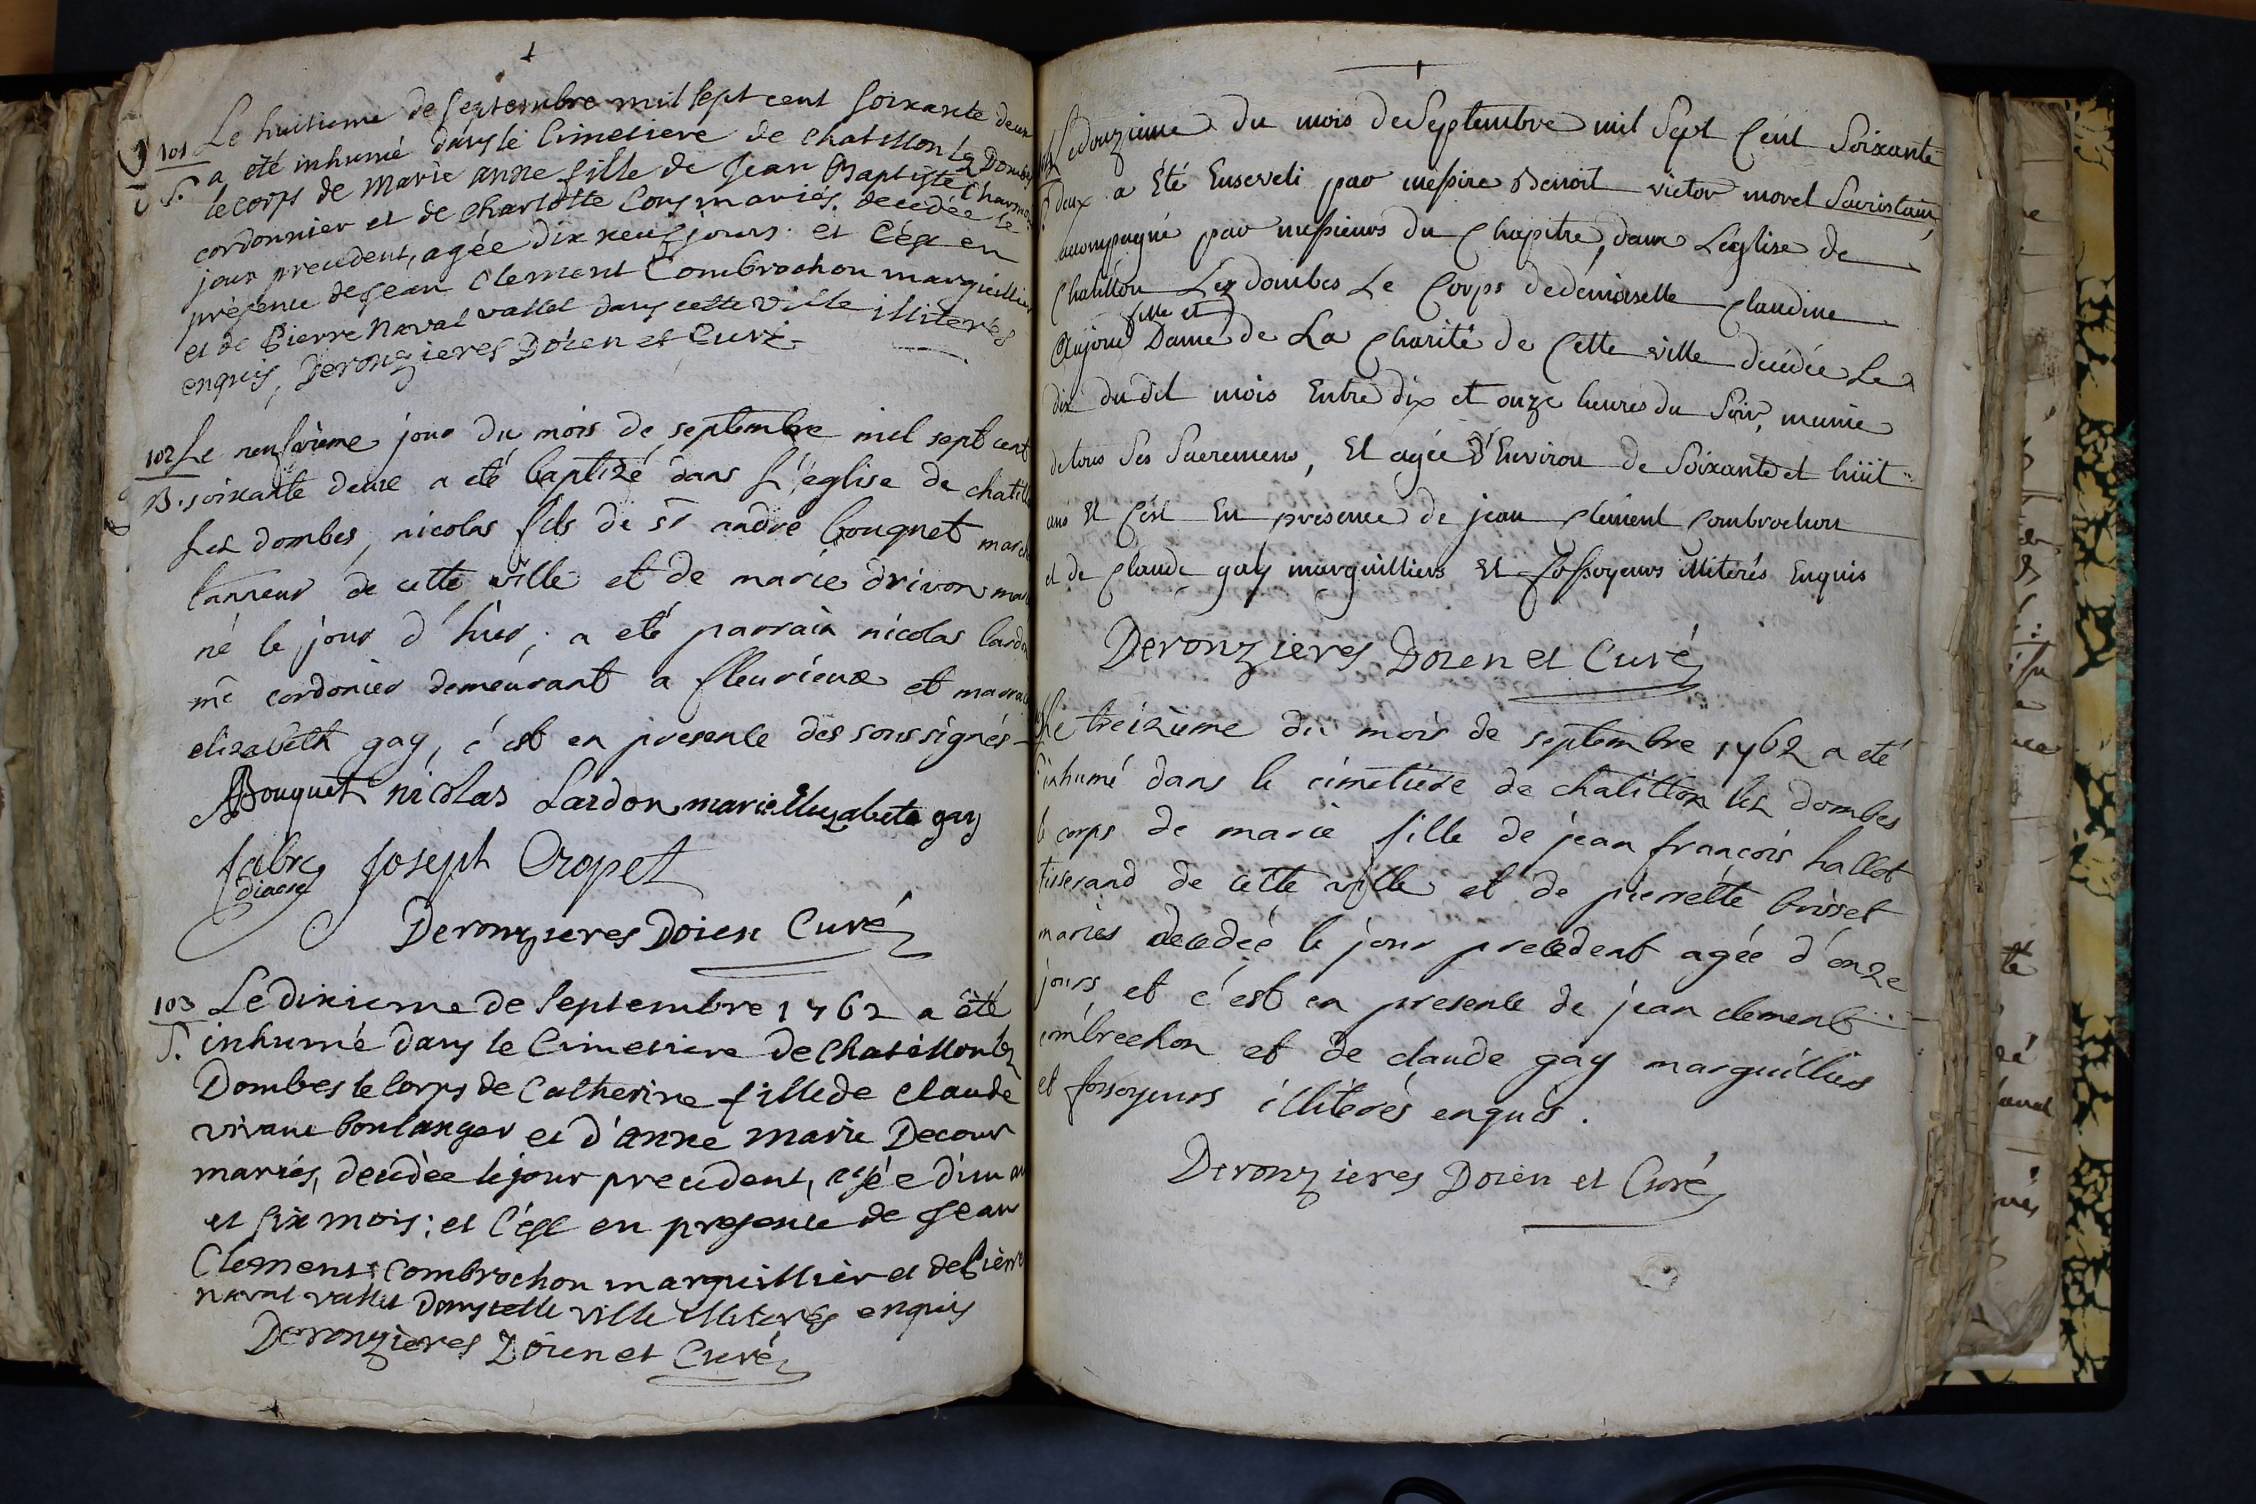 101 Le huitieme de septembre mil sept cent soixante deux
S. a eté inhumé dans le Cimetiere de Chatillon lez Dombes
le corps de Marie anne fille de Jean Baptiste Charmo
cordonnier et de Charlotte Cors mariés, decedée le
jour precedent, agée dix neuf jours. et c'est en
présence de Jean Clement Combrochon marguillier
et de Pierre Naval vallet dans cette ville illiterés
enquis, Deronzieres Doien et Curé
102 Le neufvieme jour du mois de septembre mil sept cent
B. soixante deux a eté baptizé dans L'église de chatill
Les dombes, nicolas fils de sr andré bouquet march
tanneur de cette ville et de marie drivon mar
né le jour d'hier; a eté parrain nicolas lardon
me cordonier demeurant a fleurieux et marrai
elizabeth gay, c'est en presence des soussignés
Bouquet nicolas Lardon marie Eluzabete gay
fabre Joseph Cropet
diacre
Deronzieres Doien Curé
103 Le dixieme de septembre 1762 a été
S. inhumé dans le Cimetiere de Chatillon lez
Dombes le corps de Catherine fille de Claude
vivant boulanger et d'anne marie Decour
mariés, decedée le jour precedent, agée d'un an
et six mois: et c'est en presence de Jean
Clement Combrochon marguillier et de Pierre
naval vallet dans cette ville illiterés enquis
Deronzieres Doien et Curé
Le douzieme du mois de Septembre mil Sept Cent Soixante
deux a Eté Enseveli par messire Benoit victor morel Sacristain,
accompagné par messieurs du Chapitre, dans L'église de
Chatillon Lez dombes Le Corps de demoiselle Claudine
fille et
Dame de La Charité de Cette ville decédée Le
dix du dit mois Entre dix et onze heures du Soir, munie
de tous Ses Sacremens, Et agée d'Environ de Soixante et huit
ans Et C'est En presence de jean clement Combrochon
et de Claude gay marguilliers Et fossoyeurs illiterés Enquis
Deronzieres Doien et Curé
Le treizieme du mois de septembre 1762 a eté
inhumé dans le cimetiere de chatillon lez dombes
le corps de marie fille de jean françois hallet
tisserand de cette ville et de pierrette brisset
mariés decedée le jour precedent agée d'onze
jours et c'est en presence de jean clement
combrechon et de claude gay marguilliers
et fossoyeurs illiterés enquis.
Deronzieres Doien et Curé